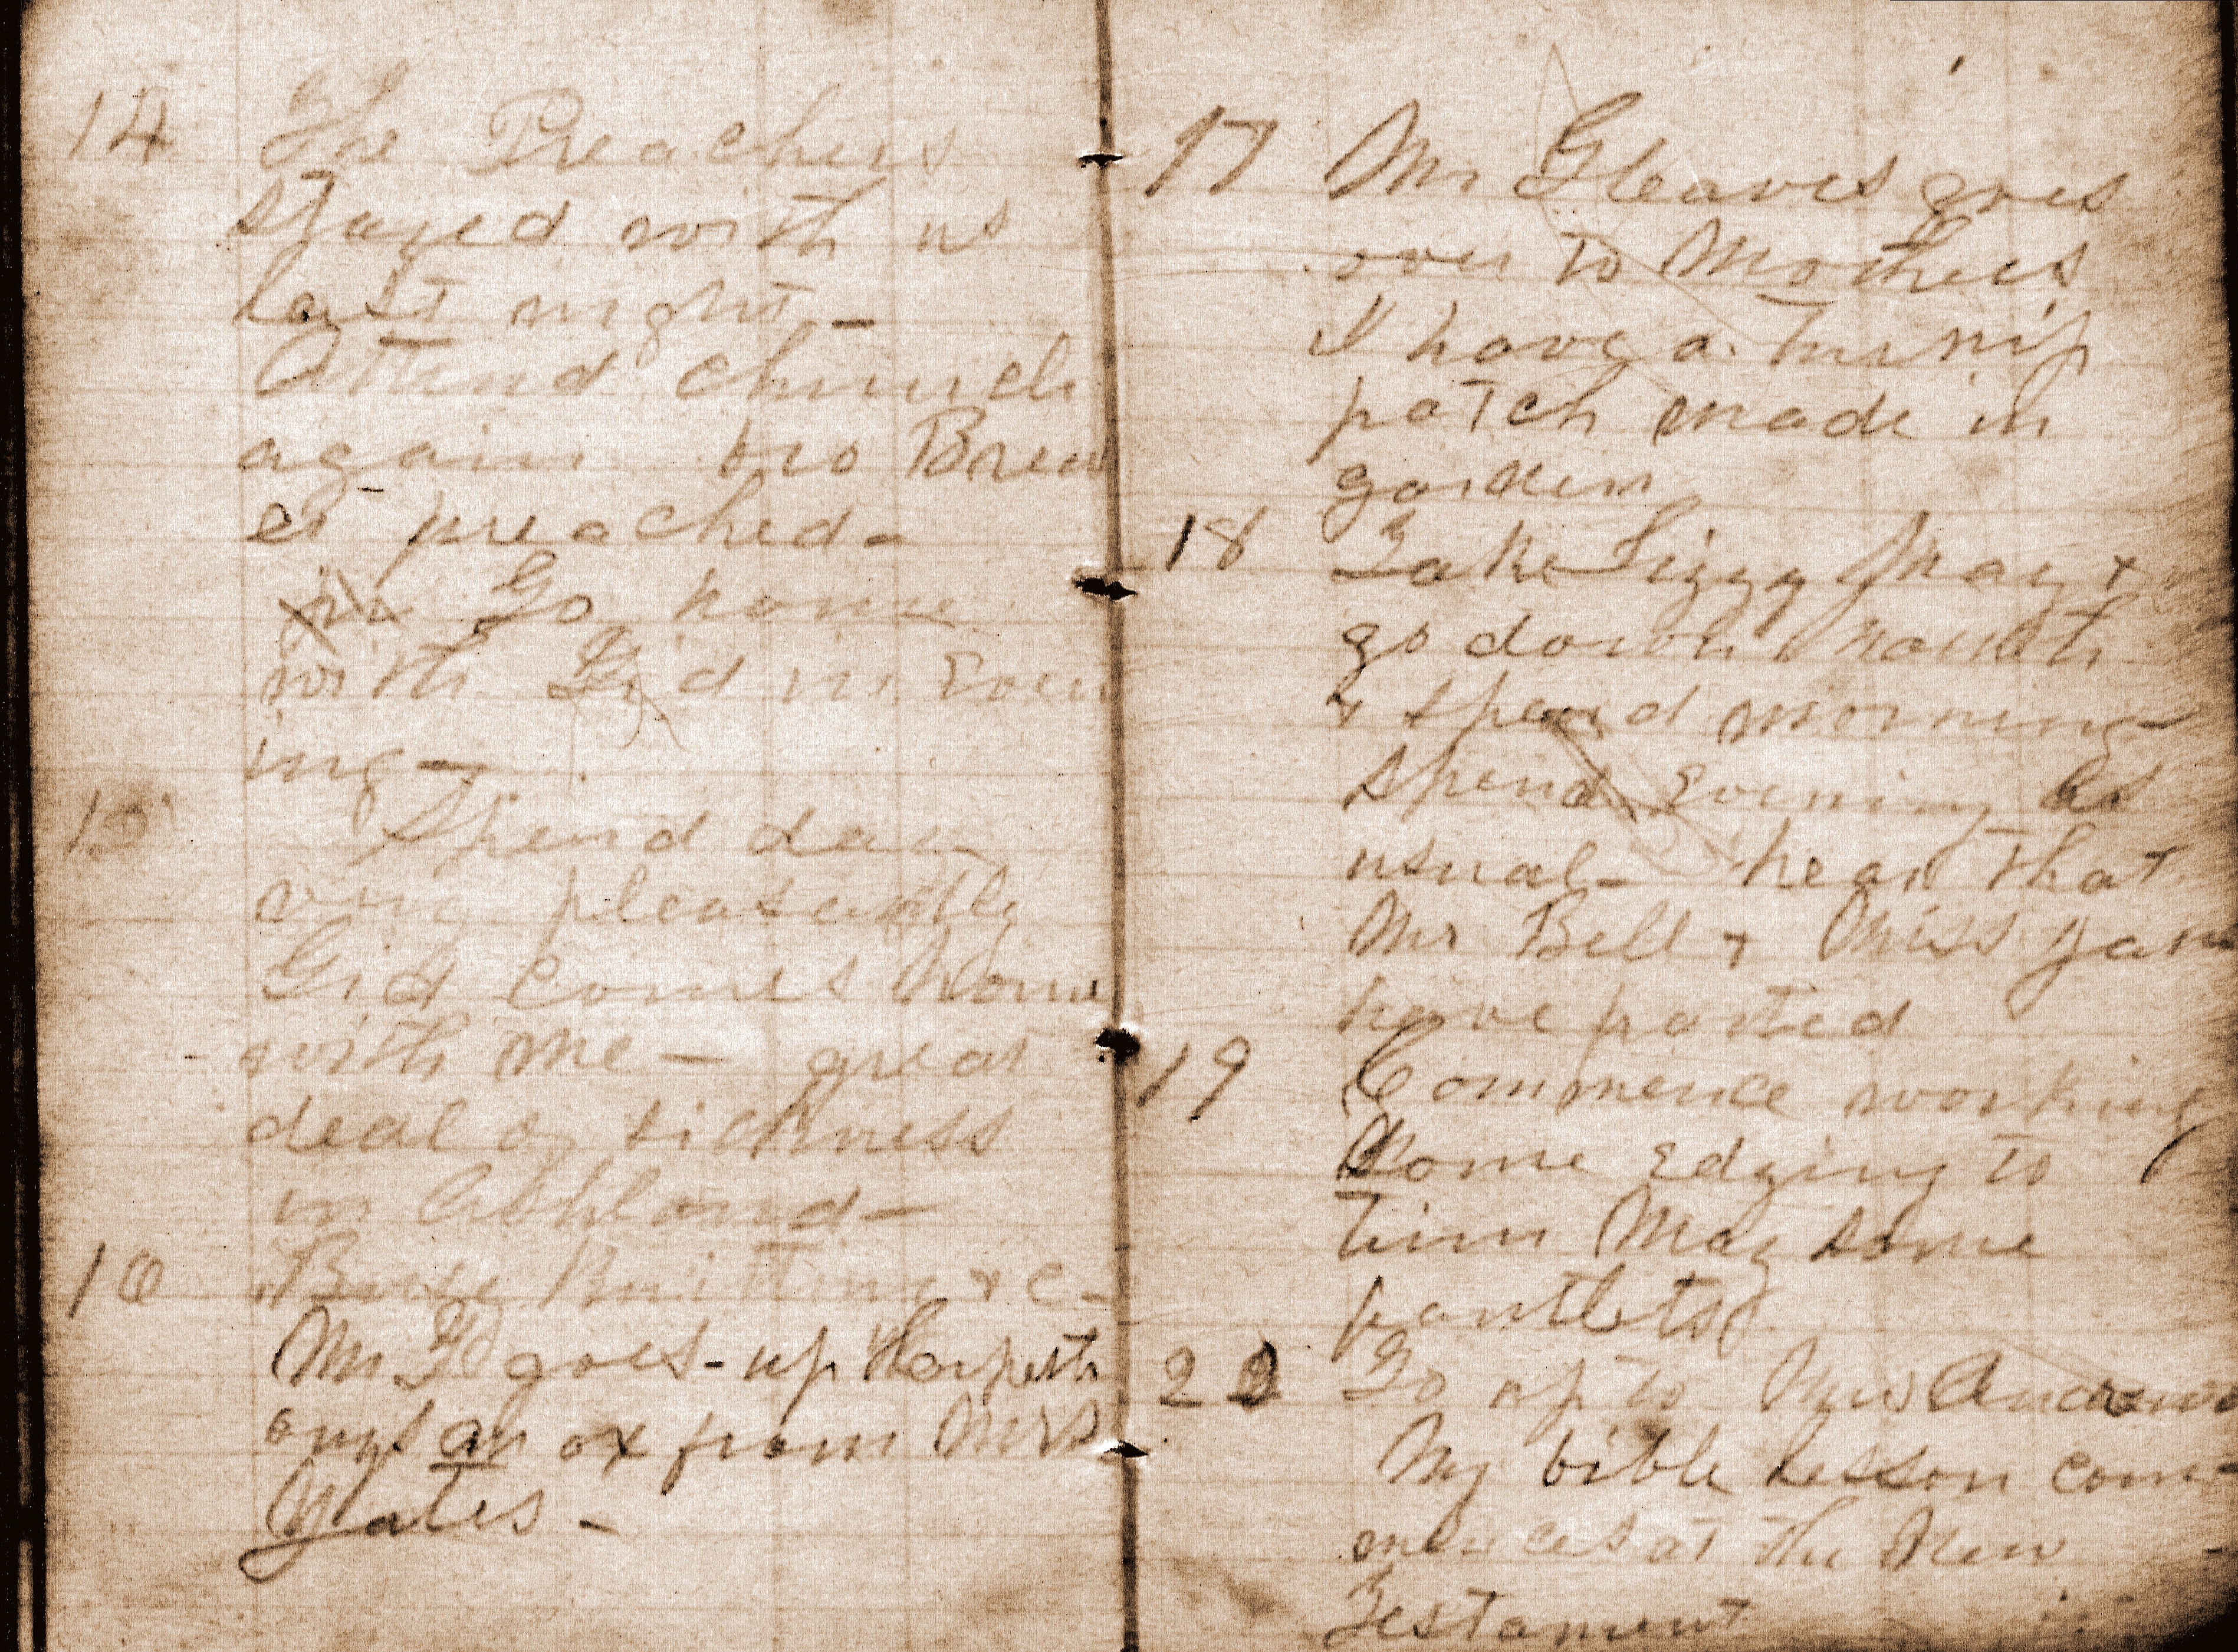 14 The Preachers
stayed with us
last night –
Attend church
again bro Brew
er preached –
Go home
with Gid in Even
ing –
15 Spend day
very pleasantly
Gid comes home
with me – great
deal of sickness
in Ashland –
16 Busy Knitting & c –
Mr G goes – up Harpeth
buys an ox from Mrs
Yates –
17 Mr Gleaves goes
over to Mothers
I have a turnip
patch made in
garden
18 Take Lizzy May &
go down
& spend morning
spend Evening as
usual – hear that
Mr Bell & Miss Jane
have parted
19 Commence working
some Edging to
trim May some
pantlets
20 Go up to Mrs Andrews
My bible Lesson com-
mences at the New
Testament